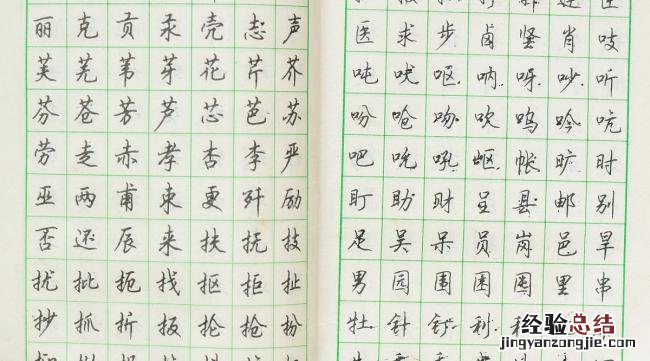 丽克贡汞壳志声
芙芜苇芽花芹芥
芬苍芳芦芯芭苏
劳走赤孝杏李严
巫两甫束更歼励
否还辰来扶抚技
扰批扼找抠拒扯
抄抓折扳抡抢扮
医求步卤坚肖吱
吨吠呕呐呀吵听
吩呛吻吹呜吟吭
吧吮吼岖帐旷时
盯助财呈县邮别
足吴呆员岗邑旱
男园围困囤里串
牡针利
经验总结
www.jingyanzongjie.com